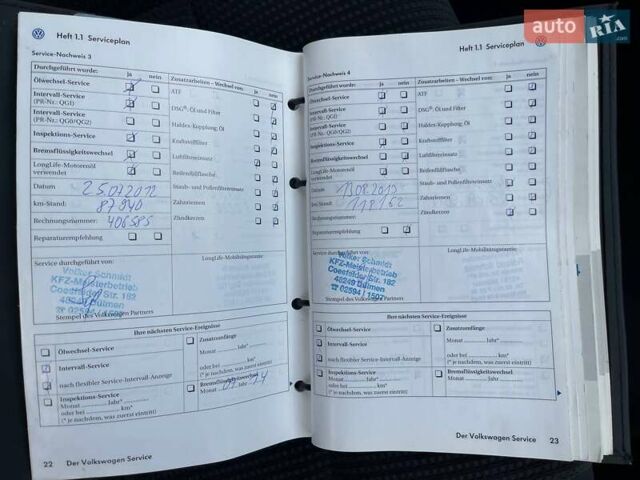 auto RIA.com
Heft 1.1 Serviceplan
Service-Nachweis 3
Durchgeführt wurde: ja nein Zusatzarbeiten – Wechsel von: ja nein
Ölwechsel-Service ATF
Intervall-Service
(PR-Nr.: QG1) DSG®, Öl und Filter
Intervall-Service
(PR-Nr.: QG0/QG2) Haldex-Kupplung, Öl
Inspektions-Service Kraftstofffilter
Bremsflüssigkeitswechsel Luftfiltereinsatz
LongLife-Motorenöl
verwendet Reifenfüllflasche
Datum 25.07.2012 Staub- und Pollenfiltereinsatz
km-Stand: 87940 Zahnriemen
Rechnungsnummer: 406585 Zündkerzen
Reparaturempfehlung
Service durchgeführt von: LongLife-Mobilitätsgarantie
Volker Schmidt
KFZ-Meisterbetrieb
Coesfelder Str. 182
48249 Dülmen
☎ 02594 / 1507
Stempel des Volkswagen Partners
Ihre nächsten Service-Ereignisse
Ölwechsel-Service
Zusatzumfänge
Monat ........ Jahr* ........
oder bei ........ km*
(* je nachdem, was zuerst eintritt)
Intervall-Service
nach flexibler Service-Intervall-Anzeige
Inspektions-Service
Monat ........ Jahr* ........
oder bei ........ km*
(* je nachdem, was zuerst eintritt)
Bremsflüssigkeitswechsel
Monat Jahr 14
22 Der Volkswagen Service
Heft 1.1 Serviceplan
Service-Nachweis 4
Durchgeführt wurde: ja nein Zusatzarbeiten – Wechsel von: ja nein
Ölwechsel-Service ATF
Intervall-Service
(PR-Nr.: QG1) DSG®, Öl und Filter
Intervall-Service
(PR-Nr.: QG0/QG2) Haldex-Kupplung, Öl
Inspektions-Service Kraftstofffilter
Bremsflüssigkeitswechsel Luftfiltereinsatz
LongLife-Motorenöl
verwendet Reifenfüllflasche
Datum Staub- und Pollenfiltereinsatz
km-Stand: 118162 Zahnriemen
Rechnungsnummer: Zündkerzen
Reparaturempfehlung
Service durchgeführt von: LongLife-Mobilitätsgarantie
Volker Schmidt
KFZ-Meisterbetrieb
Coesfelder Str. 182
48249 Dülmen
☎ 02594 / 1507
Stempel des Volkswagen Partners
Ihre nächsten Service-Ereignisse
Ölwechsel-Service
Zusatzumfänge
Monat ........ Jahr* ........
oder bei ........ km*
(* je nachdem, was zuerst eintritt)
Intervall-Service
nach flexibler Service-Intervall-Anzeige
Inspektions-Service
Monat ........ Jahr* ........
oder bei ........ km*
(* je nachdem, was zuerst eintritt)
Bremsflüssigkeitswechsel
Monat ........ Jahr ........
Der Volkswagen Service 23